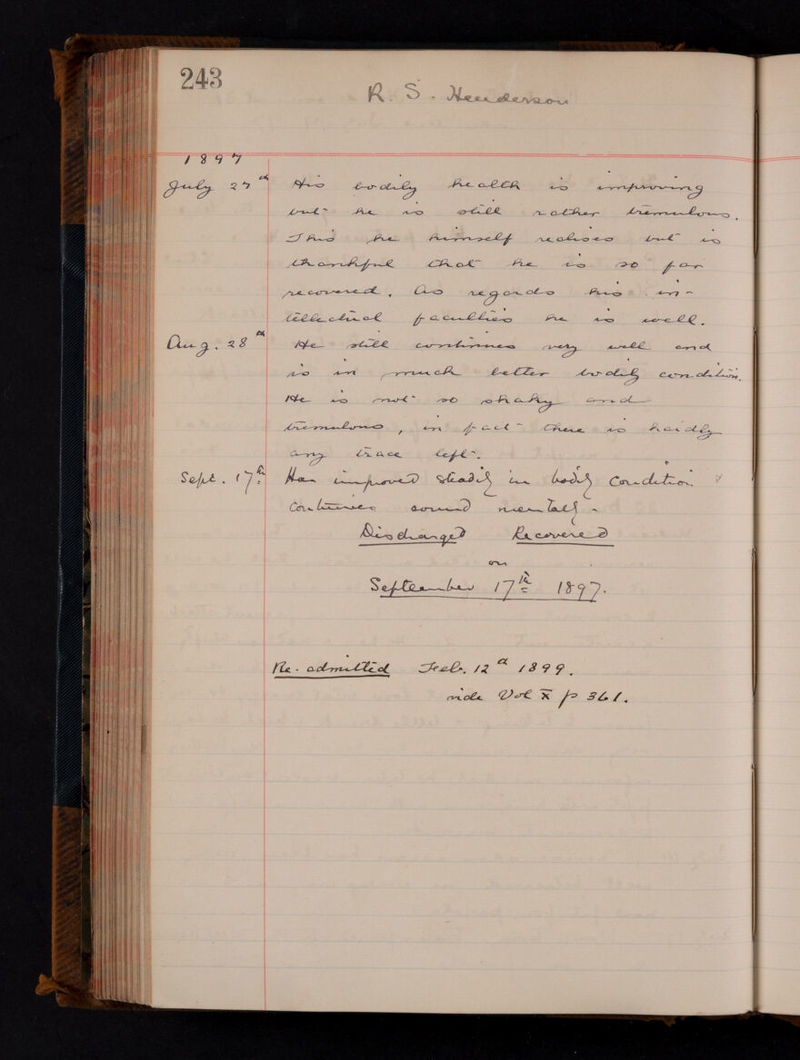 243
R. S. Henderson
1897
July 27th His bodily health is improving
but he is still rather tremulous.
This he himself realises but is
thankful that he is so far
recovered. As regards his in-
tellectual faculties he is well.
Aug. 28th He still continues very well and
is in much better bodily condition.
He is not so shaky and
tremulous, in fact there is hardly
any trace left.
Sept. 17th Has improved steadily in bodily condition &
continues sound mentally -
Discharged Recovered
on
September 17th 1897.
Re-admitted Feb. 12th 1899.
vide Vol X p 361.